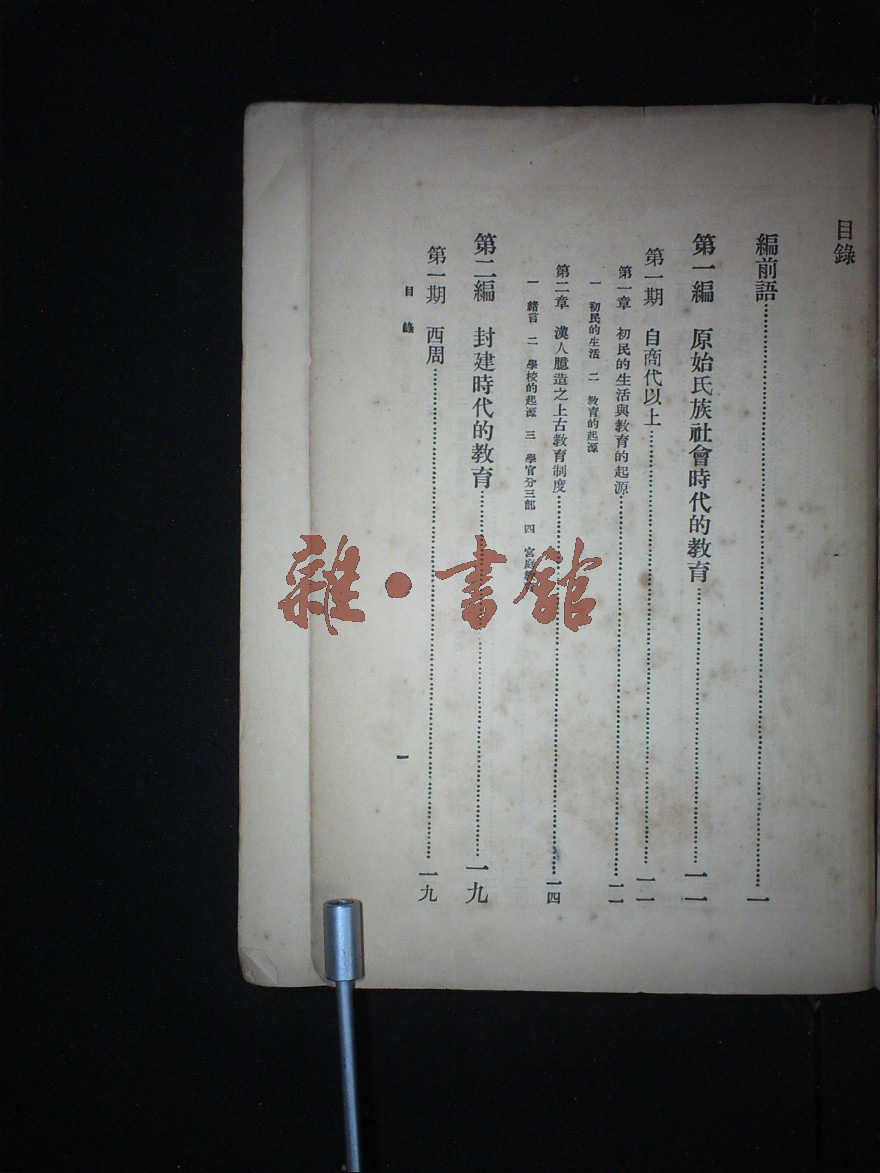 目錄
編前語……一
第一編 原始氏族社會時代的教育……一一
第一期 自商代以上……一一
第一章 初民的生活與教育的起源……一一
一 初民的生活 二 教育的起源
第二章 漢人臆造之上古教育制度……一四
一 緒言 二 學校的起源 三 學官分三部 四 宮庭
第二編 封建時代的教育……一九
第一期 西周……一九
目錄 一
雜·書館